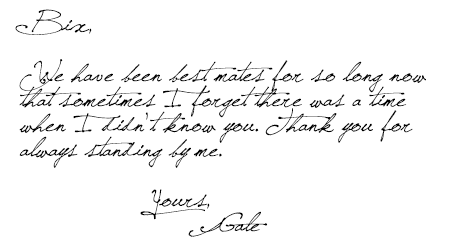 Bix,
We have been best mates for so long now
that sometimes I forget there was a time
when I didn't know you. Thank you for
always standing by me.
Yours,
Gale